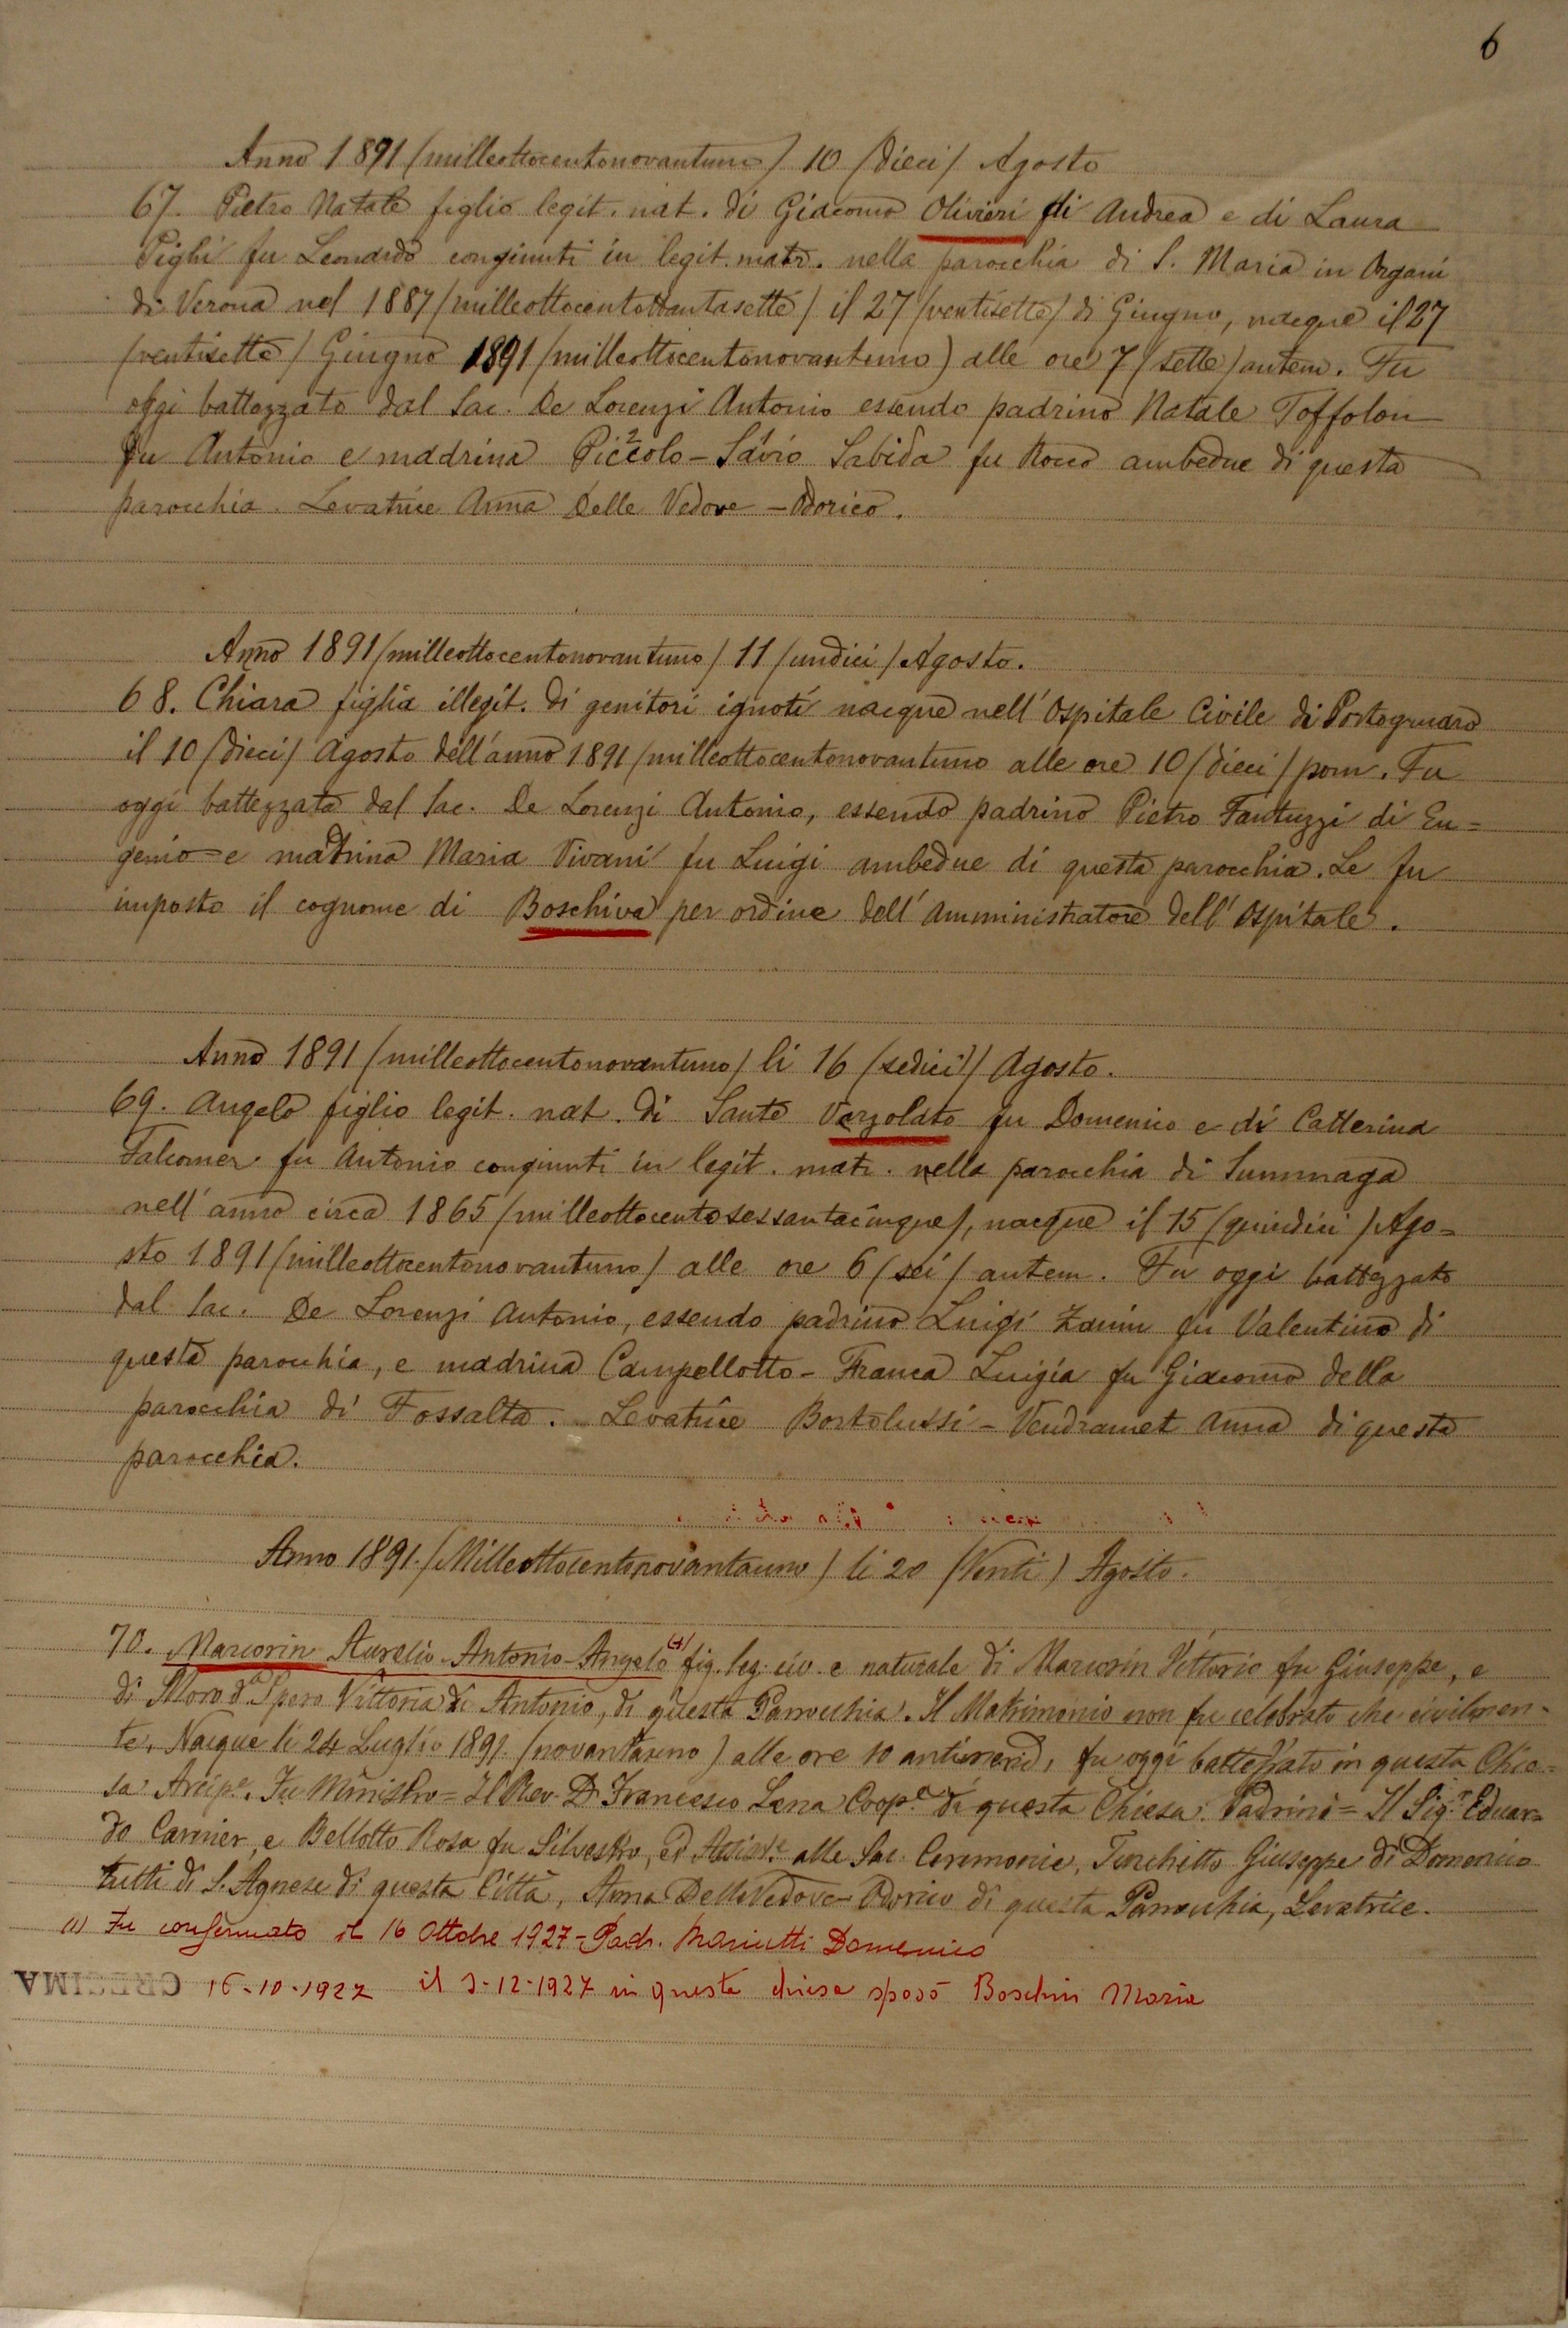 6
Anno 1891 (milleottocentonovantuno) 10 (dieci) Agosto
67. Pietro Natale figlio legit. nat. di Giacomo Olivieri di Andrea e di Laura
Pighi fu Leonardo congiunti in legit. matr. nella parocchia di S. Maria in Organi
di Verona nel 1887 (milleottocentottantasette) il 27 (ventisette) di Giugno, nacque il 27
(ventisette) Giugno 1891 (milleottocentonovantuno) alle ore 7 (sette) antem. Fu
oggi battezzato dal Sac. De Lorenzi Antonio essendo padrino Natale Toffolon
fu Antonio e madrina Piccolo-Savio Sabida fu Rocco ambedue di questa
parocchia. Levatrice Anna Delle Vedove - Odorico.
Anno 1891 (milleottocentonovantuno) 11 (undici) Agosto.
68. Chiara figlia illegit. di genitori ignoti nacque nell'Ospitale Civile di Portogruaro
il 10 (dieci) Agosto dell'anno 1891 (milleottocentonovantuno alle ore 10 (dieci) pom. Fu
oggi battezzata dal Sac. De Lorenzi Antonio, essendo padrino Pietro Fantuzzi di Eu=
genio e madrina Maria Vivani fu Luigi ambedue di questa parocchia. Le fu
imposto il cognome di Boschiva per ordine dell'Amministratore dell'Ospitale.
Anno 1891 (milleottocentonovantuno) li 16 (sedici) Agosto.
69. Angelo figlio legit. nat. di Sante Verzolato fu Domenico e di Catterina
Falcomer fu Antonio congiunti in legit. matr. nella parocchia di Summaga
nell'anno circa 1865 (milleottocentosessantacinque), nacque il 15 (quindici) Ago=
sto 1891 (milleottocentonovantuno) alle ore 6 (sei) antem. Fu oggi battezzato
dal Sac. De Lorenzi Antonio, essendo padrino Luigi Zanin fu Valentino di
questa parocchia, e madrina Campellotto - Franca Luigia fu Giacomo della
parocchia di Fossalta. Levatrice Bortolussi - Vendramet Anna di questa
parocchia.
Anno 1891. (Milleottocentonovantauno) li 20 (Venti) Agosto.
70. Marcorin Aurelio-Antonio-Angelo (1) fig. leg. civ. e naturale di Marcorin Vittorio fu Giuseppe, e
di Moro da Spero Vittoria di Antonio, di questa Parrocchia. Il Matrimonio non fu celebrato che civilmen=
te. Nacque li 24 Luglio 1891 (novantauno) alle ore 10 antimerid, fu oggi battezzato in questa Chie=
sa Arcip.e. Fu Ministro = Il Rev. D. Francesco Lena Coop.e di questa Chiesa. Padrini = Il Sig.r Eduar=
do Carnier, e Bellotto Rosa fu Silvestro, ed Assist.e alle Sac. Cerimonie, Turchetto Giuseppe di Domenico
tutti di S. Agnese di questa Città, Anna Delle Vedove - Odorico di questa Parrocchia, Levatrice.
(1) Fu confermato il 16 Ottobre 1927 - Padr. Mariutti Domenico
CRESIMA 16-10-1927 il 3-12-1927 in questa chiesa sposò Boschin Maria